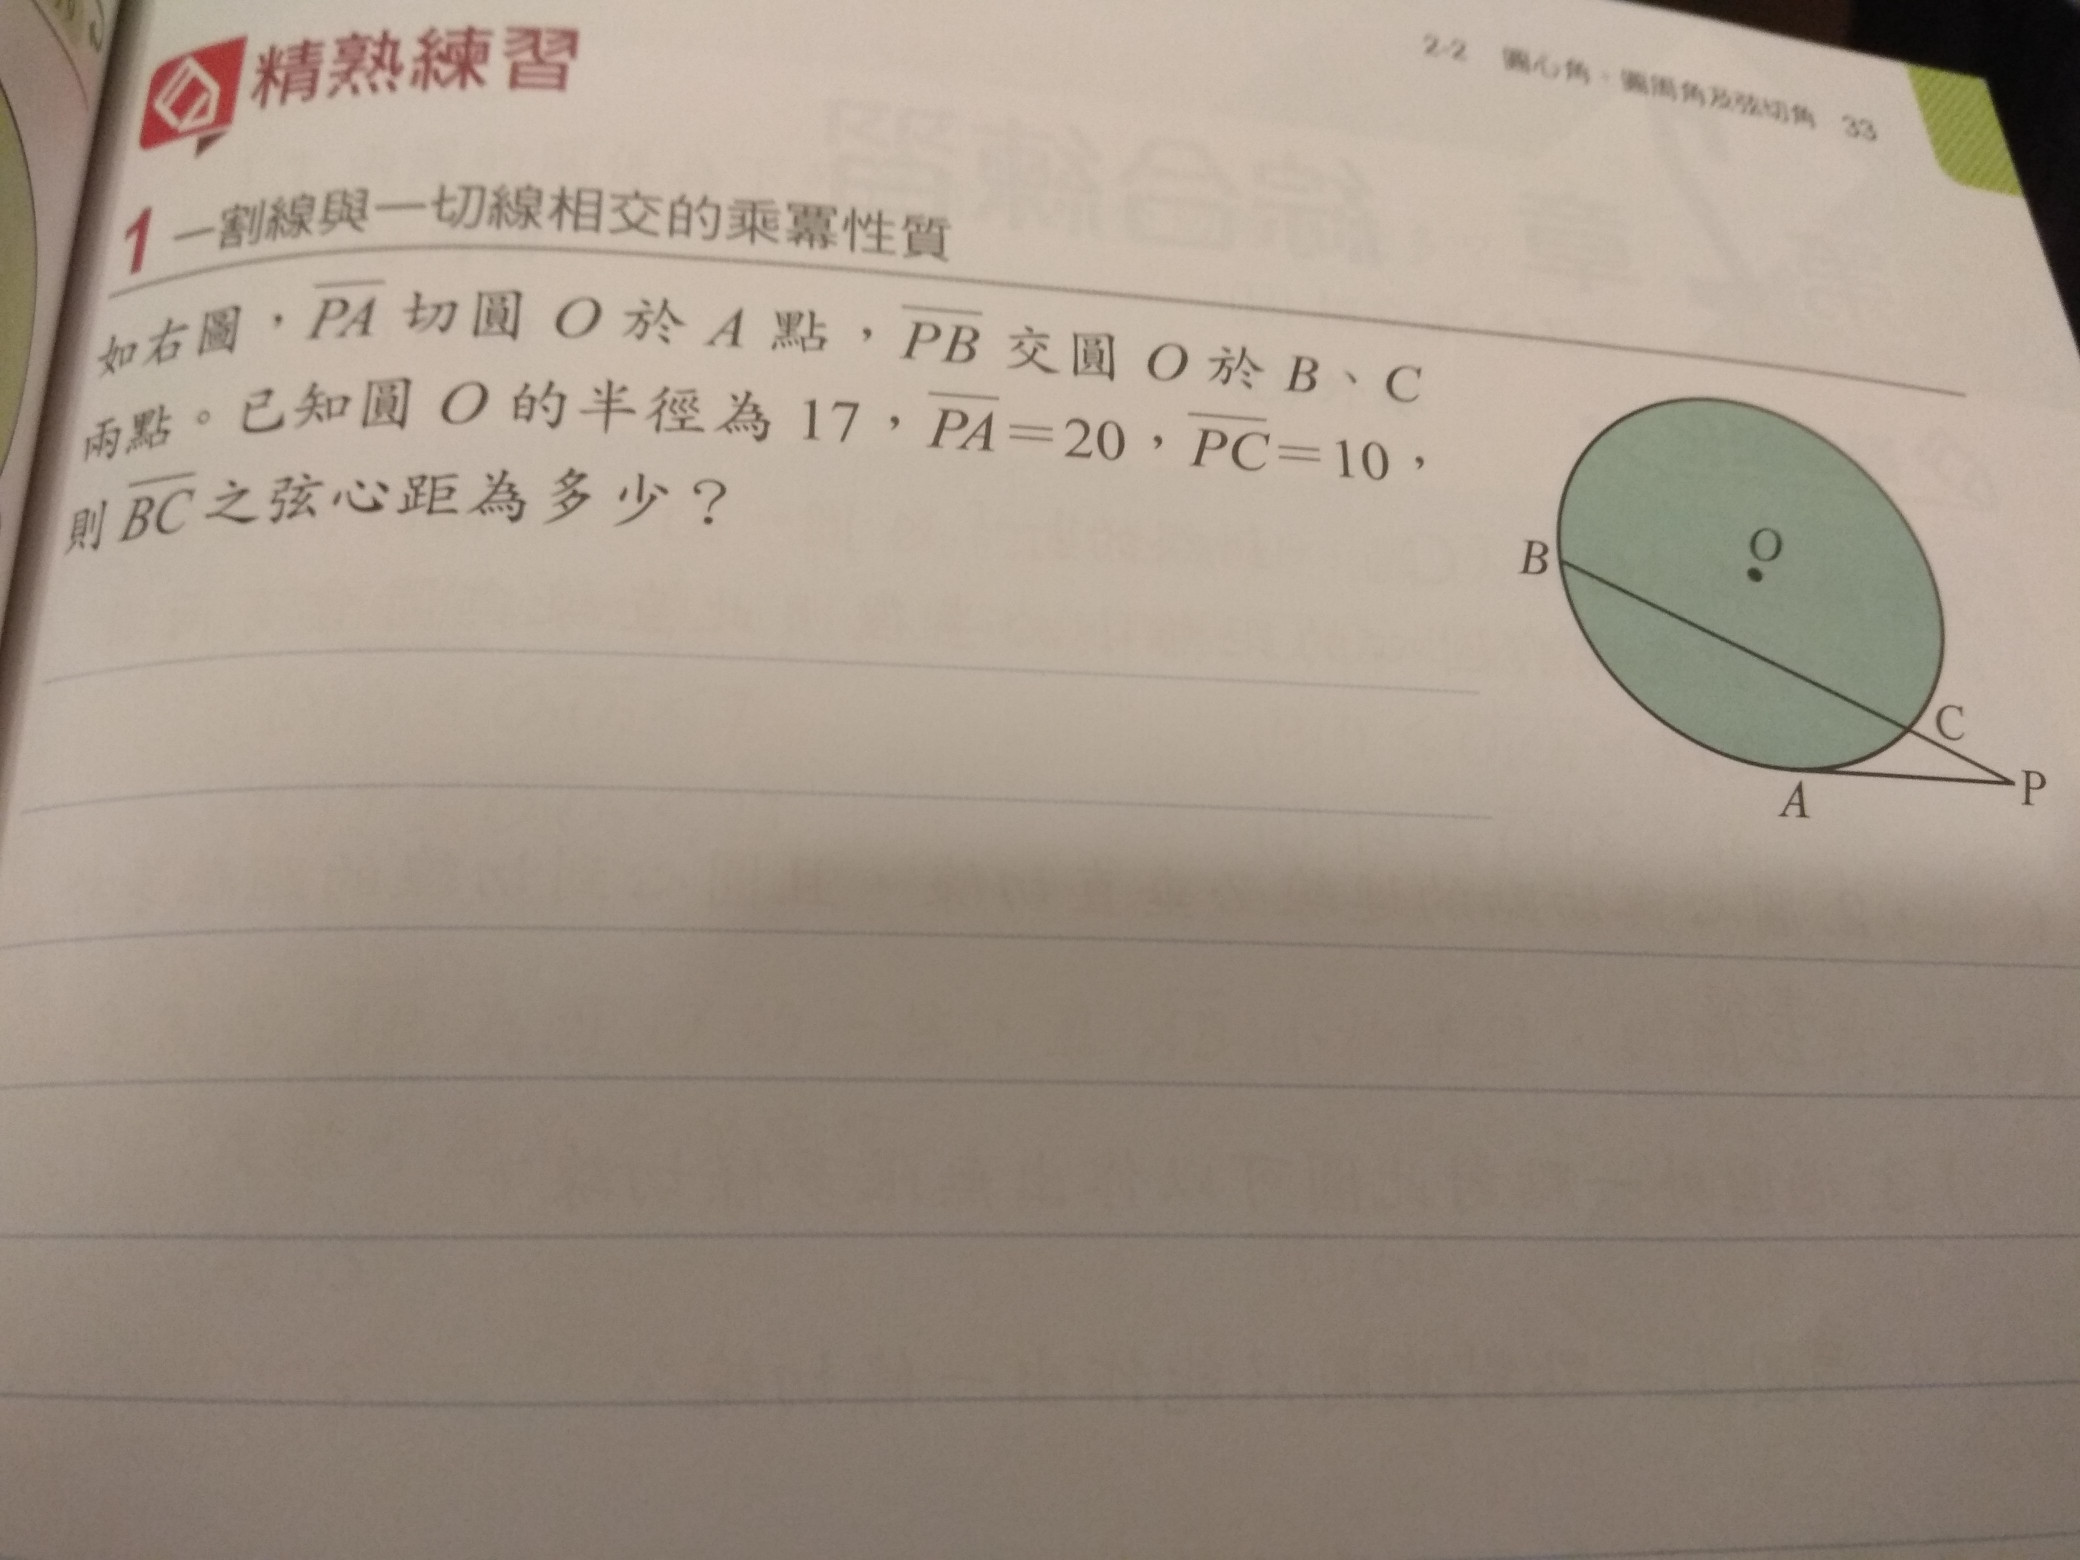 2-2 圓心角、圓周角及弦切角 33
精熟練習
1 一割線與一切線相交的乘冪性質
如右圖，PA 切圓 O 於 A 點，PB 交圓 O 於 B、C
兩點。已知圓 O 的半徑為 17，PA＝20，PC＝10，
則 BC 之弦心距為多少？
O
B
C
P
A